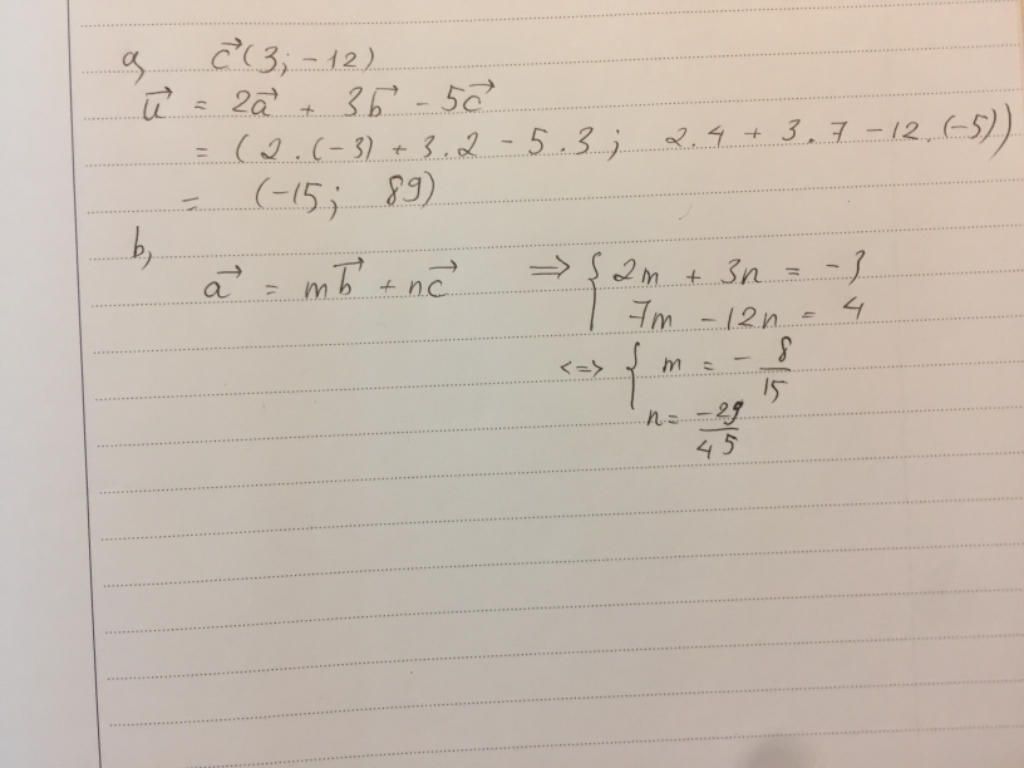 a, c⃗ (3; -12)
u⃗ = 2a⃗ + 3b⃗ - 5c⃗
= (2.(-3) + 3.2 - 5.3; 2.4 + 3.7 - 12.(-5))
= (-15; 89)
b,
a⃗ = mb⃗ + nc⃗ => { 2m + 3n = -3
7m - 12n = 4
<=> { m = - 8/15
n = -29/45